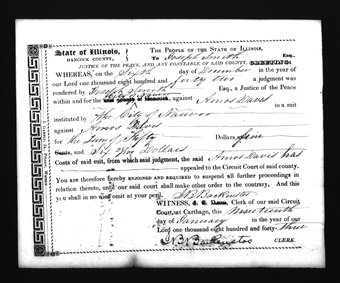 State of Illinois, The People of the State of Illinois,
HANCOCK COUNTY, To Joseph Smith Esq.
JUSTICE OF THE PEACE, AND ANY CONSTABLE OF SAID COUNTY, GREETING:
WHEREAS, on the Sixth day of December in the year of
our Lord one thousand eight hundred and forty two a judgment was
rendered by Joseph Smith Esq., a Justice of the Peace
within and for the City of Nauvoo against Amos Davis in a suit
instituted by The City of Nauvoo
against Amos Davis
for the sum of Fifty Dollars, fine
Cents, and Six Dollars
Costs of said suit, from which said judgment, the said Amos Davis has
appealed to the Circuit Court of said county.
You are therefore hereby ENJOINED AND REQUIRED to suspend all further proceedings in
relation thereto, until our said court shall make other order to the contrary. And this
you shall in no wise omit at your peril.
WITNESS, Clerk of our said Circuit
Court, at Carthage, this Nineteenth
day of January in the year of our
Lord one thousand eight hundred and forty-three
J. B. Backenstos CLERK.